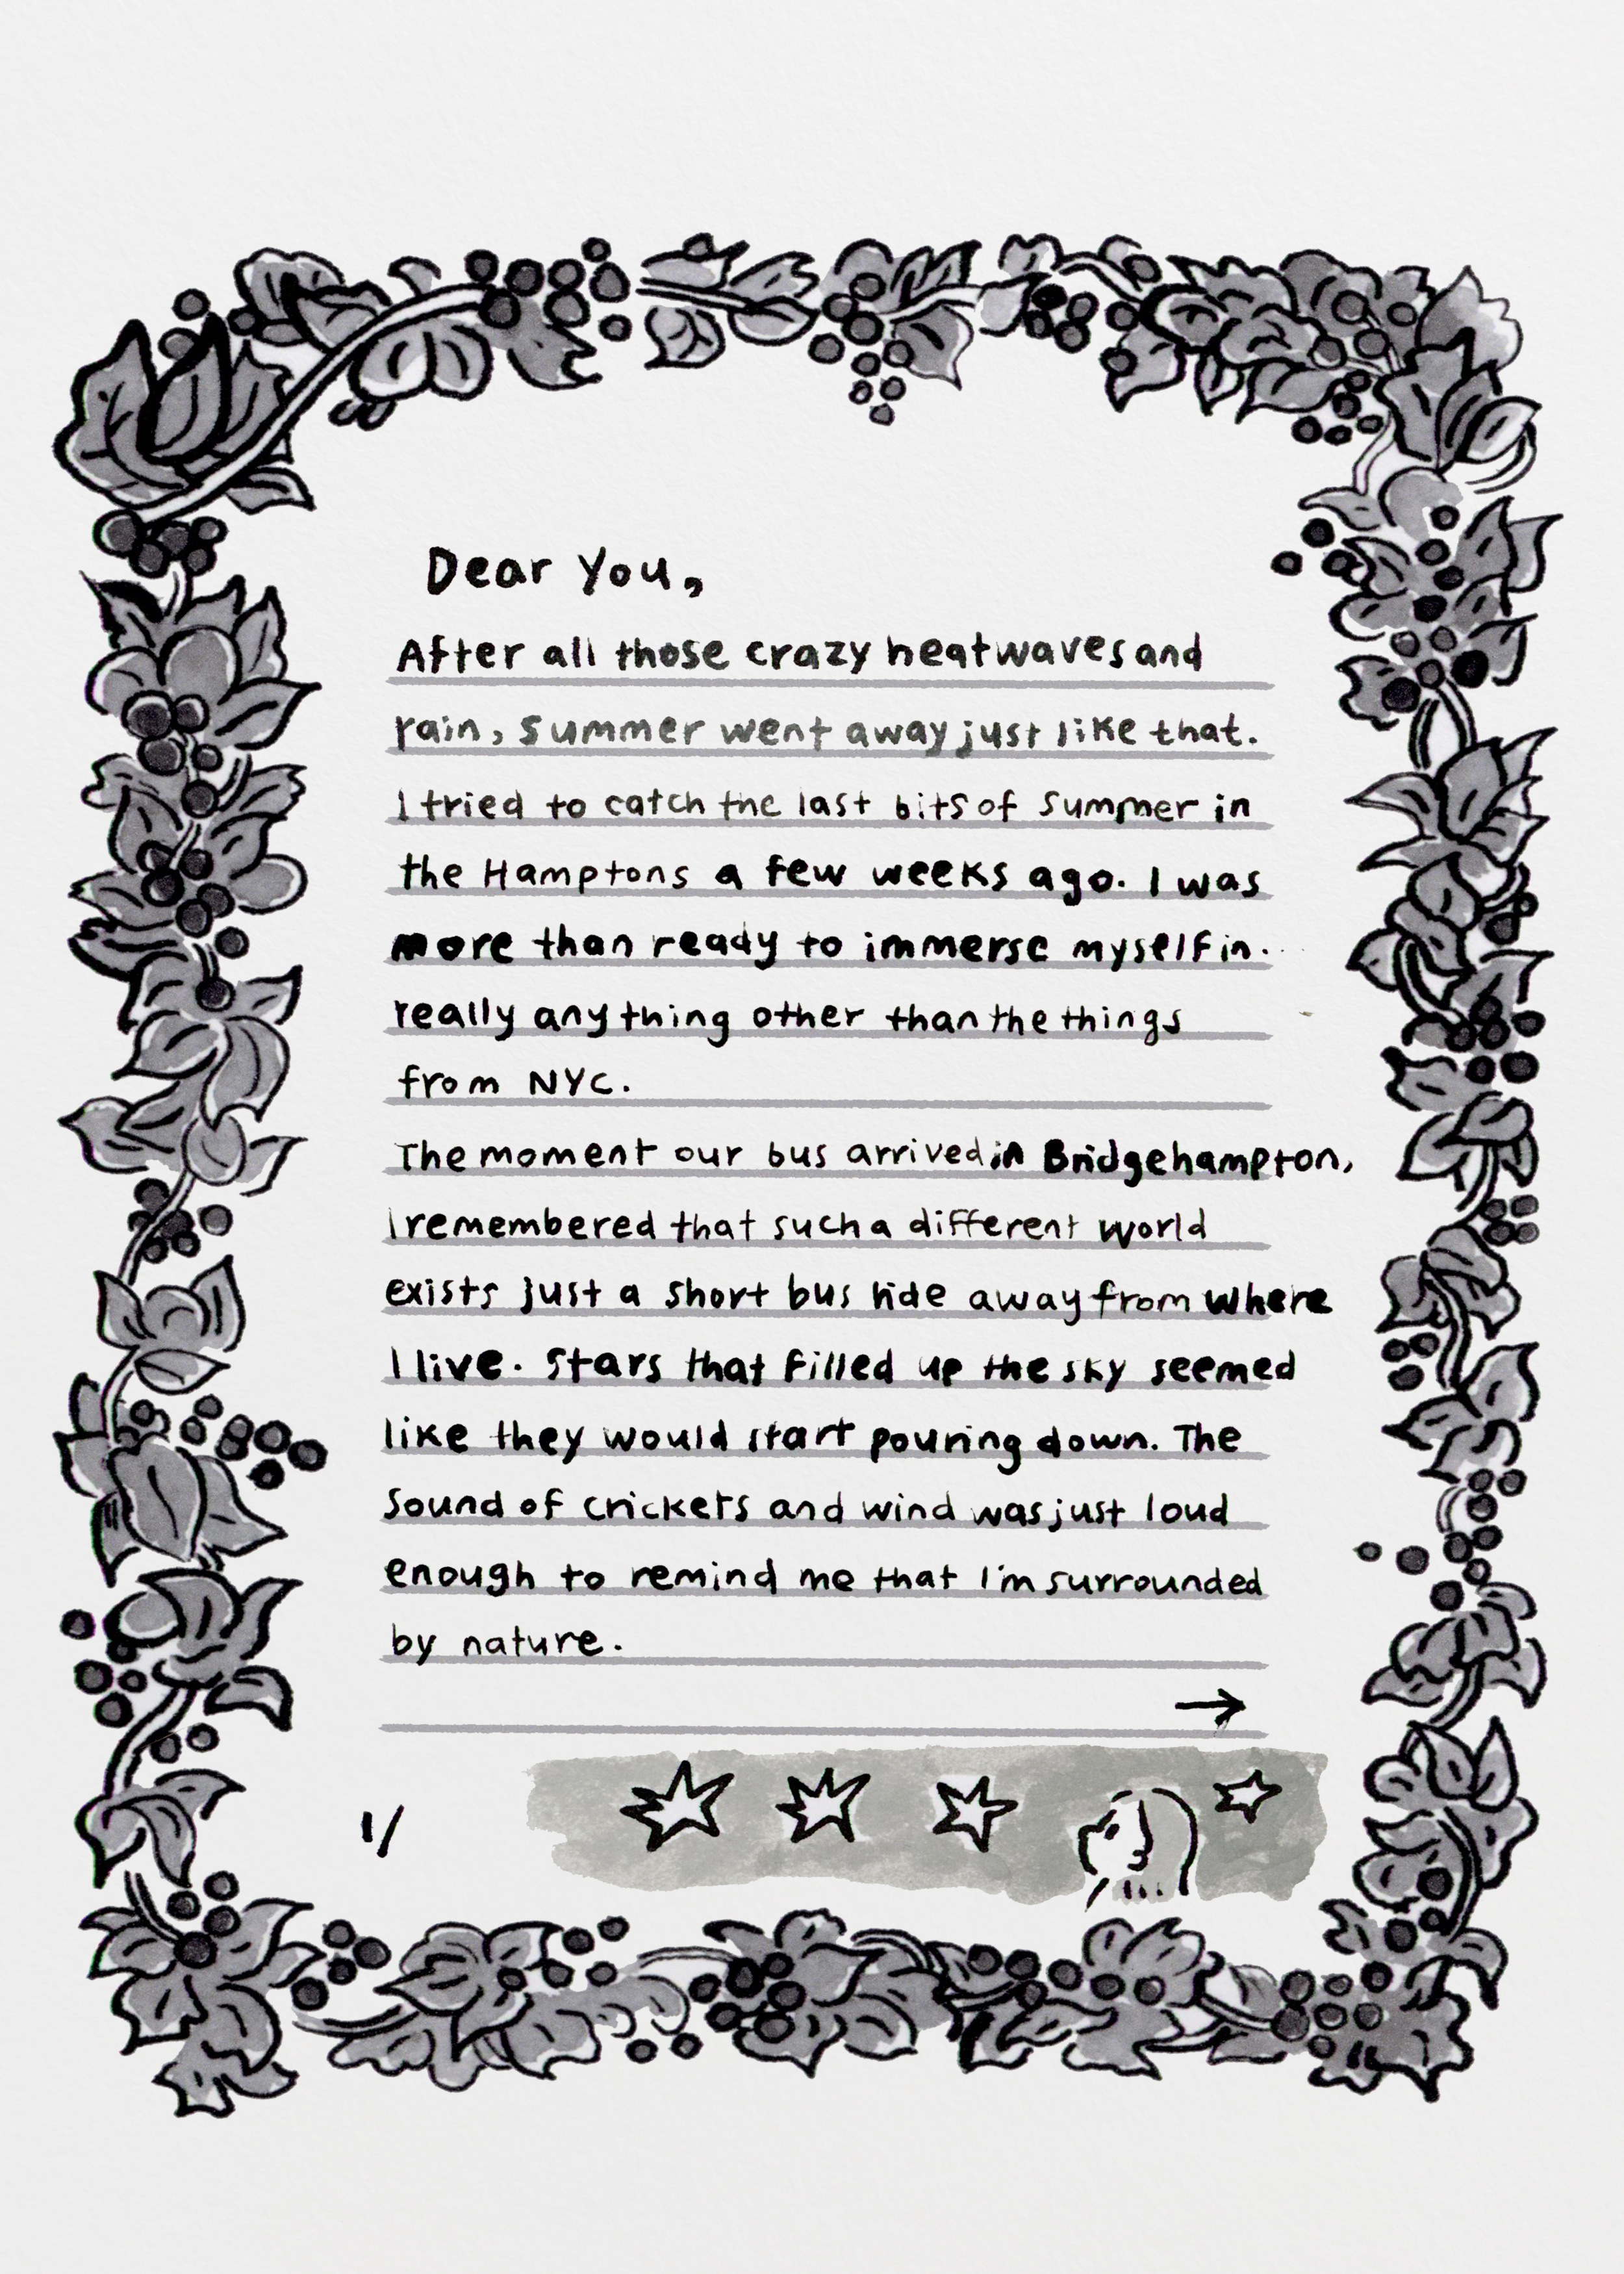 Dear You,
After all those crazy heatwaves and
rain, summer went away just like that.
I tried to catch the last bits of summer in
the Hamptons a few weeks ago. I was
more than ready to immerse myself in.
really anything other than the things
from NYC.
The moment our bus arrived in Bridgehampton,
I remembered that such a different world
exists just a short bus ride away from where
I live. Stars that filled up the sky seemed
like they would start pouring down. The
sound of crickets and wind was just loud
enough to remind me that I'm surrounded
by nature.
→
1/